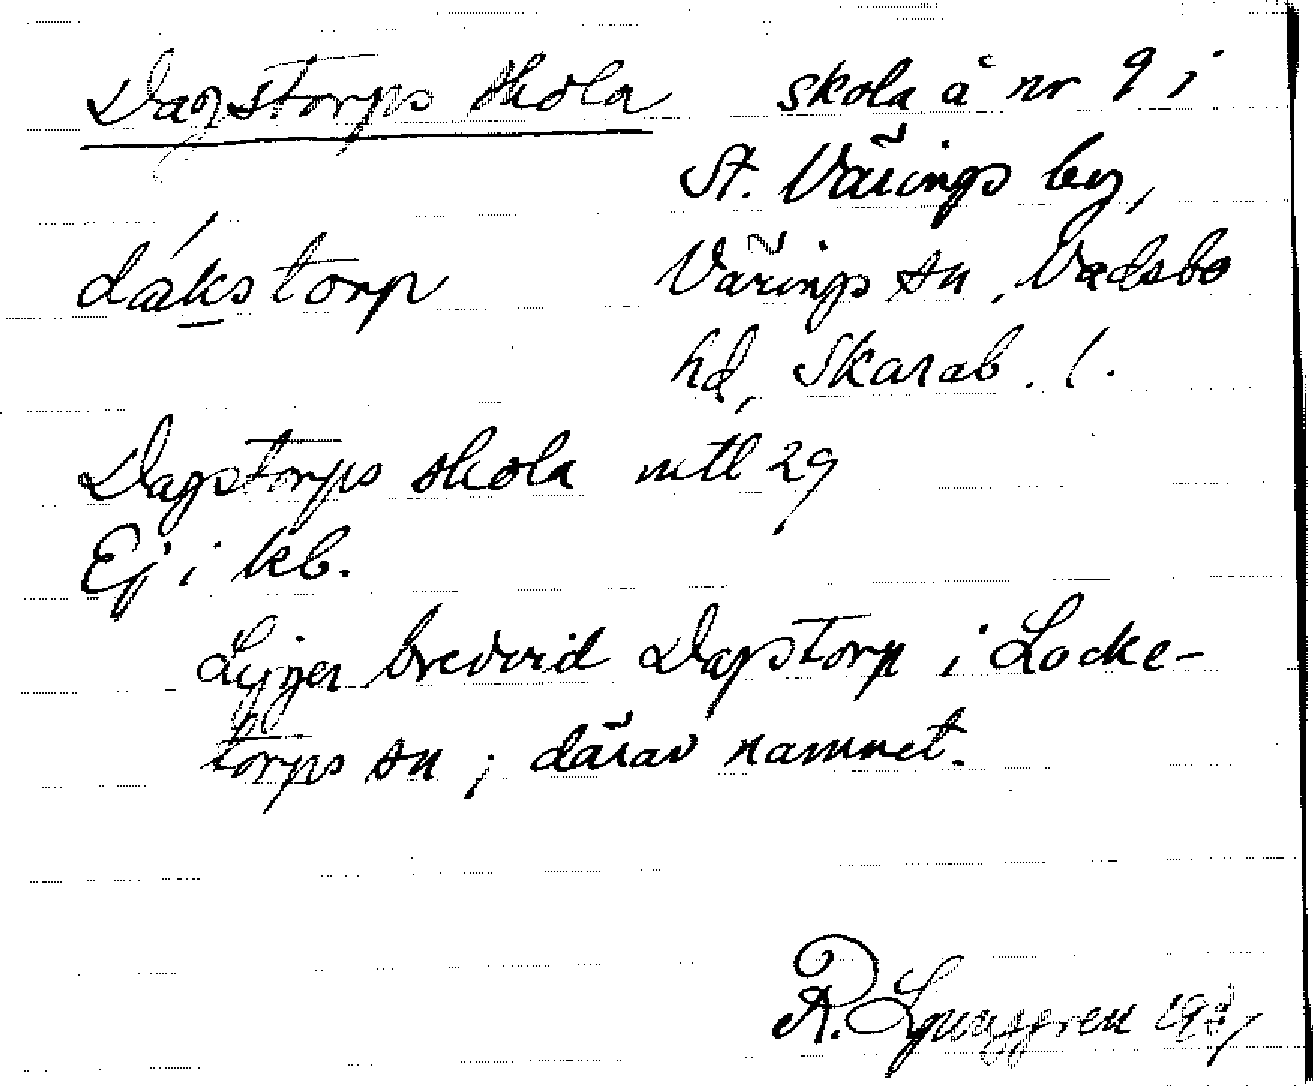 Dagstorps skola skola å nr 9 i
St. Värings by,
dákstorp Värings sn, Vadsbo
hd, Skarab. l.
Dagstorps skola mtl 29
Ej i kb.
Ligger bredvid Dagstorp i Locke-
torps sn; därav namnet.
R. Ljunggren